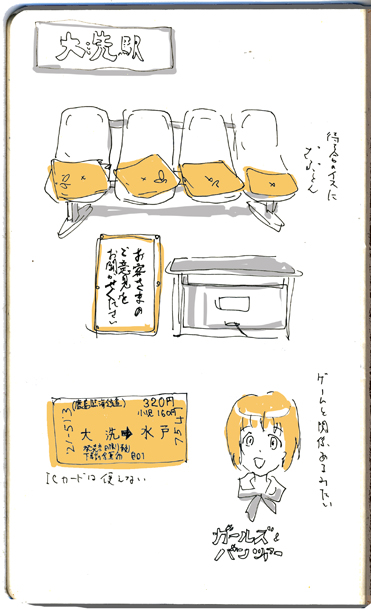 大洗駅
待合のイスに
ざぶとん
お客さまの
ご意見を
お聞かせください
(鹿島臨海鉄道) 320円
小児 160円
大洗➡水戸
発売当日限り有効
下車前途無効 801
21-513
7541
ICカードは使えない
ゲームと関係あるみたい
ガールズ&
パンツァー